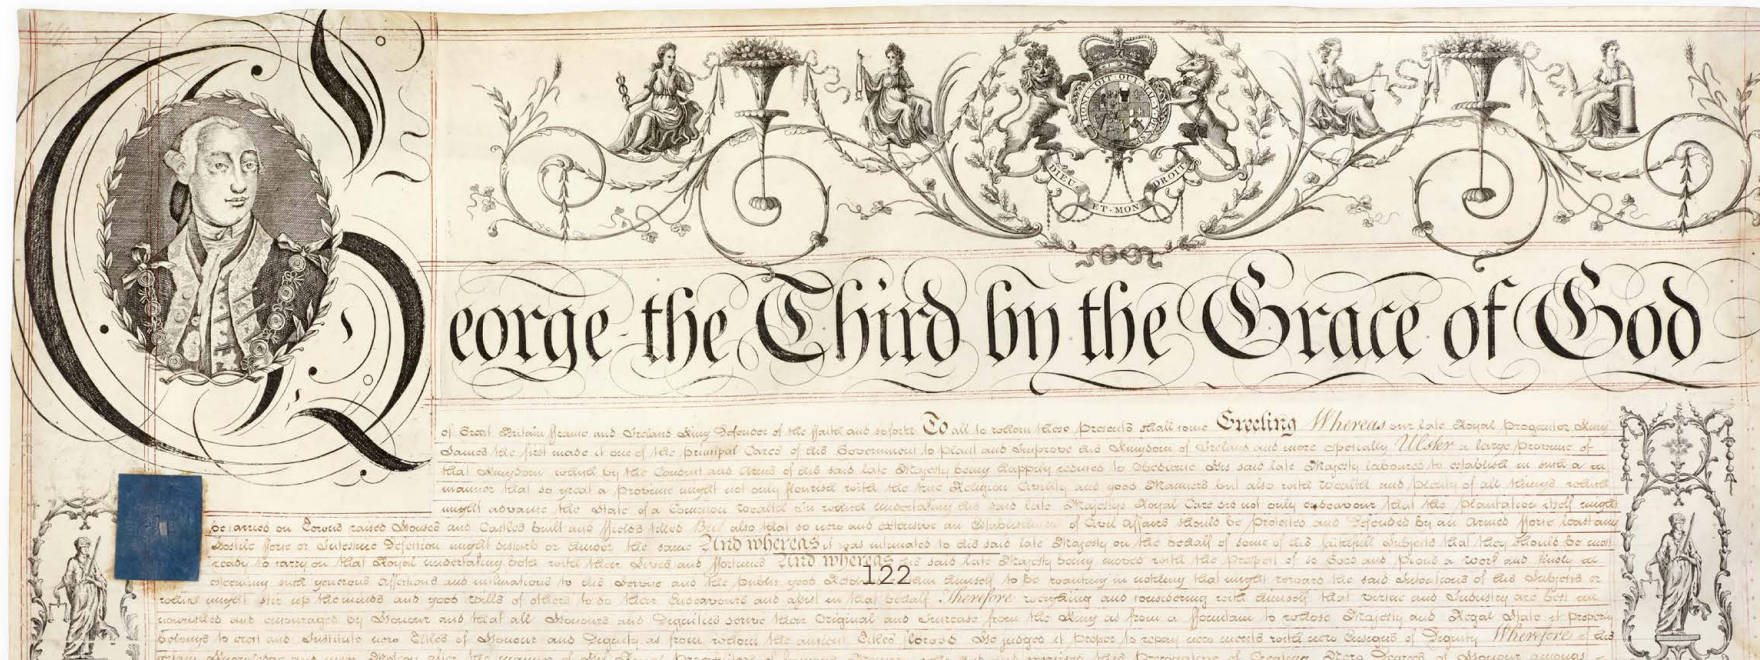 HONI SOIT QUI MAL Y PENSE
DIEU ET·MON DROIT
George the Third by the Grace of God
of Great Britain France and Ireland King Defender of the faith and soforth To all to whom these presents shall come Greeting Whereas our late Royal Progenitor King
James the first made it one of the principal Cares of his Government to plant and improve his Kingdom of Ireland and more especially Ulster a large province of
that Kingdom which by the Conduct and Arms of his said late Majesty being happily reduced to Obedience His said late Majesty laboured to establish in such a
manner that so great a province might not only flourish with the true Religion Civility and good Manners but also with Wealth and plenty of all things which
might advance the State of a Common wealth in which undertaking his said late Majestys Royal Care did not only endeavour that the plantation itself might
be carried on Towns raised Houses and Castles built and ffields tilled But also that so new and extensive an Establishment of Civil Affairs should be protected and defended by an armed fforce least any
Hostile fforce or Intestine Defection might disturb or hinder the same And whereas it was intimated to his said late Majesty on the behalf of some of his faithfull Subjects that they should be most
ready to carry on that Royal undertaking both with their Lives and ffortunes And whereas his said late Majesty being moved with the prospect of so Good and pious a work and kindly
esteeming such generous affections and inclinations to his Service and the public good himself to be wanting in nothing that might reward the said Intentions of his Subjects or
122
which might stir up the minds and good wills of others to do their Endeavours and assist in that behalf Therefore weighing and considering with himself that virtue and Industry are best
nourished and encouraged by Honour and that all Honours and Dignities derive their Original and Increase from the King as from a ffountain to whose Majesty and Royal State it properly
belongs to erect and Institute new Titles of Honour and Dignity as from whom the ancient Titles flowed He judged it proper to repay new merits with new Ensigns of Dignity Wherefore of his